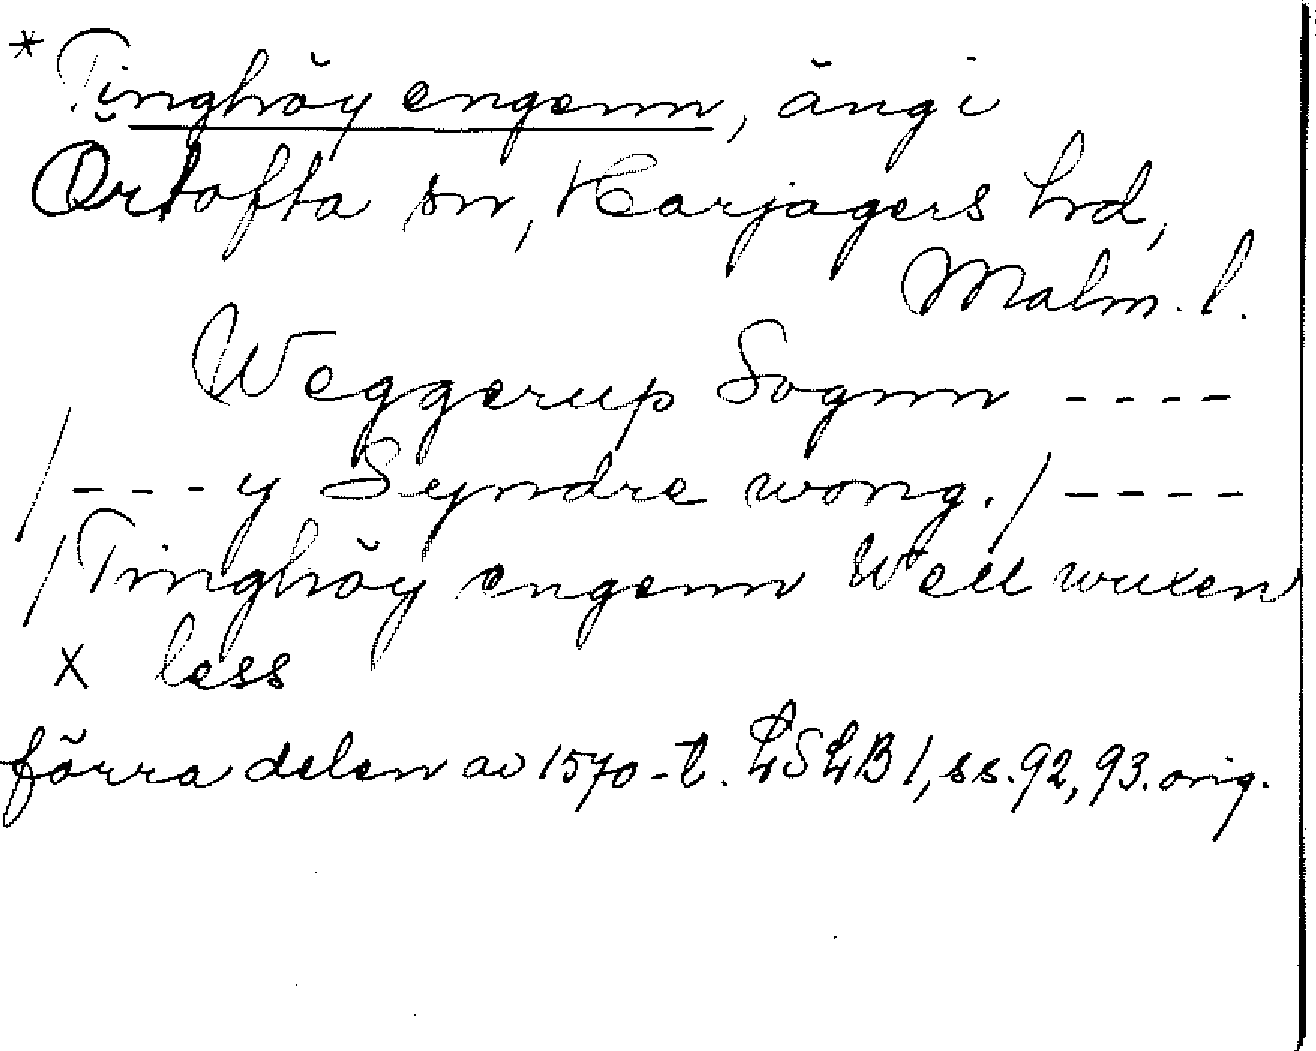 * Tinghöy engenn, äng i
Örtofta sn, Harjagers hd,
Malm. l.
Weggerup Sognn ----
/---y Syndre wong./----
/Tinghöy engenn Well wuxen
X less
förra delen av 1570-t. LSLB 1, ss. 92, 93. orig.